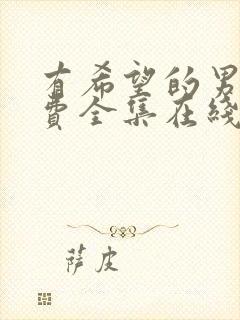 有希望的男
费全集在线
萨皮